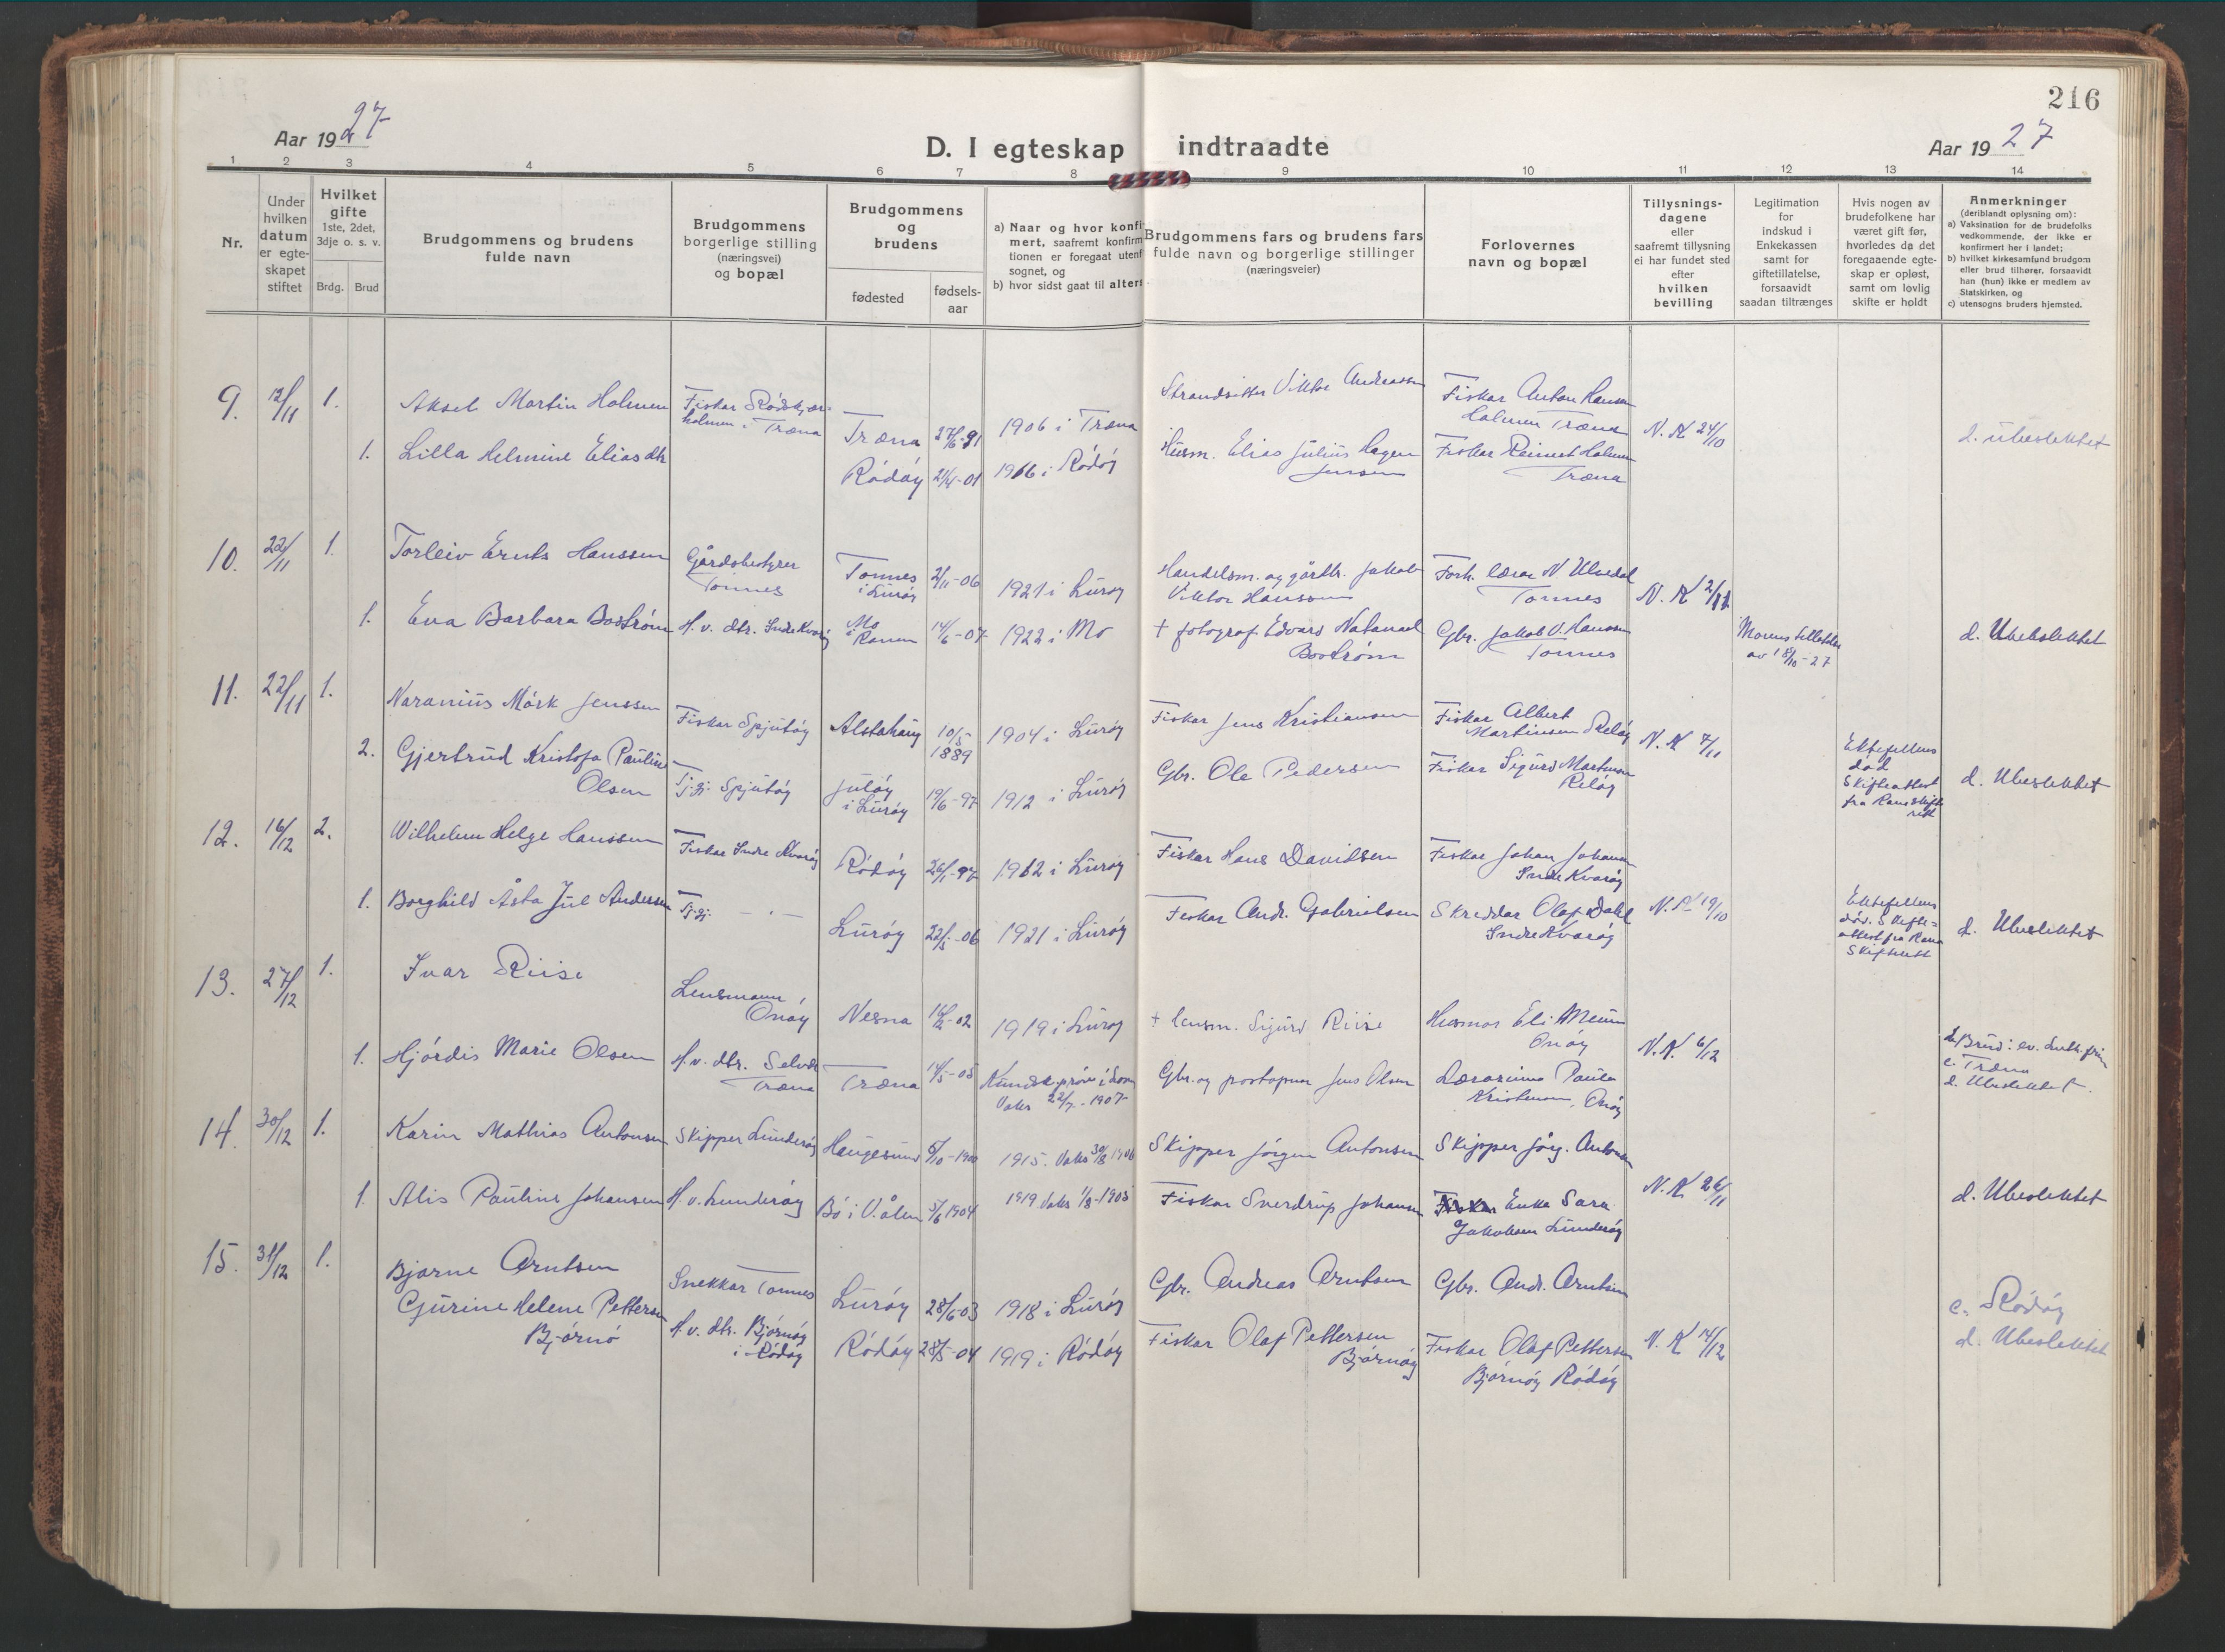 216
Aar 1927
D. I egteskap indtraadte
Aar 1927
1 2 3 4 5 6 7 8 9 10 11 12 13 14
Nr.
Under
hvilken
datum
er egte-
skapet
stiftet
Hvilket
gifte
1ste, 2det,
3dje o. s. v.
Brdg. Brud
Brudgommens og brudens
fulde navn
Brudgommens
borgerlige stilling
(næringsvei)
og bopæl
Brudgommens
og
brudens
fødested
fødsels-
aar
a) Naar og hvor konfi-
mert, saafremt konfirm
tionen er foregaat utenf
sognet, og
b) hvor sidst gaat til alters
Brudgommens fars og brudens fars
fulde navn og borgerlige stillinger
(næringsveier)
Forlovernes
navn og bopæl
Tillysnings-
dagene
eller
saafremt tillysning
ei har fundet sted
efter
hvilken
bevilling
Legitimation
for
indskud i
Enkekassen
samt for
giftetillatelse,
forsaavidt
saadan tiltrænges
Hvis nogen av
brudefolkene har
været gift før,
hvorledes da det
foregaaende egte-
skap er opløst,
samt om lovlig
skifte er holdt
Anmerkninger
(deriblandt oplysning om):
a) Vaksination for de brudefolks
vedkommende, der ikke er
konfirmert her i landet;
b) hvilket kirkesamfund brudgom
eller brud tilhører, forsaavidt
han (hun) ikke er medlem av
Statskirken, og
c) utensogns bruders hjemsted.
9. 12/11 1. Aksel Martin Holmen
Fiskar Rødskjær-
holmen i Træna
Træna 27/6-91
1906 i Træna
Strandsitter Viktor Andreassen
Fiskar Anton Hansen
Holmen Træna
N. K 24/10
1. Lilla Helmine Eliasdtr
Rødøy 21/4-01
1916 i Rødøy
Husm. Elias Julius Hagen
Jensen
Fiskar Reinert Holmen
Træna
d. ubeslektet
10. 22/11 1. Torleiv Ernts Hanssen
Gårdsbestyrer
Tonnes
Tonnes
i Lurøy
2/11-06
1921 i Lurøy
Handelsm. og gårdbr. Jakob
Viktor Hanssen
Forh. lærar N Ulvedal
Tonnes
N. K 2/11
1. Eva Barbara Boström
H. v. dtr. Indre Kvarøy
Mo
i Ranen
14/6-07
1922 i Mo
+ fotograf Edvard Natanael
Boström
Gbr. Jakob V. Hanssen
Tonnes
av 18/10-27
d. Ubeslektet
11. 22/11 1. Naranius Mörk Jenssen
Fiskar Spjutøy
Alstahaug
10/5
1889
1904 i Lurøy
Fiskar Jens Kristiansen
Fiskar Albert
Martinsen Reløy
N. K 7/11
2. Gjertrud Kristofa Pauline
Olsen
Tj.gj. Spjutøy
i Lurøy
19/6-97
1912 i Lurøy
Gbr. Ole Pedersen
Fiskar Sigurd Martinsen
Reløy
Ektefellens
død
Skifteattest
fra Rana skifte
rett
d. Ubeslektet
12. 16/12 2. Wilhelm Helge Hanssen
Fiskar Indre Kvarøy
Rødøy 26/1-97
1912 i Lurøy
Fiskar Hans Davidsen
Fiskar Johan Johansen
Indre Kvarøy
1. Borghild Åsta Jul Andersen
Tj.gj. - " -
Lurøy 22/5-06
1921 i Lurøy
Fiskar Andr. Gabrielsen
Skreddar Olaf Dahl
Indre Kvarøy
19/10
Ektefellens
død. Skifte-
attest fra Rana
Skifterett
d. Ubeslektet
13. 27/12 1. Ivar Riise
Lensmann,
Onøy
Nesna
1919 i Lurøy
+ lensm. Sigurd Riise
Onøy
N. K. 6/12
1. Hjørdis Marie Olsen
H. v. dtr. Selvær
Træna
Træna 14/5-05
Vaks 22/7-1907
Gbr. og postopner Jens Olsen
Lærarinne Paula
Kristensen, Onøy
b. Brud: ev. luth. frim
c. Træna
d. Ubeslektet.
14. 30/12 1. Karin Mathias Antonsen
Skipper Lunderøy
Haugesund 5/10-1900
1915. Vaks 30/8 1906
Skipper Jørgen Antonsen
Skipper Jørg. Antonsen
N. K 26/11
1. Alis Pauline Johansen
H. v. Lunderøy
Bø i V.ålen 5/6 1904
1919 Vaks 1/8-1905
Fiskar Sverdrup Johansen
Enke Sara
Jakobsen Lunderøy
d. Ubeslektet
15. 31/12 1. Bjarne Arntsen
Snekkar Tonnes
Lurøy 28/6-03
1918 i Lurøy
Gbr. Andreas Arntsen
Gbr. Andr. Arntsen
Gurine Helene Pettersen
Bjørnø
H. v. dtr. Bjørnøy
i Rødøy
Rødøy 28/5-04
1919 i Rødøy
Fiskar Olaf Pettersen
Bjørnøy
Fiskar Olaf Pettersen
Bjørnøy Rødøy
N. K 14/12
c. Rødøy
d. Ubeslektet